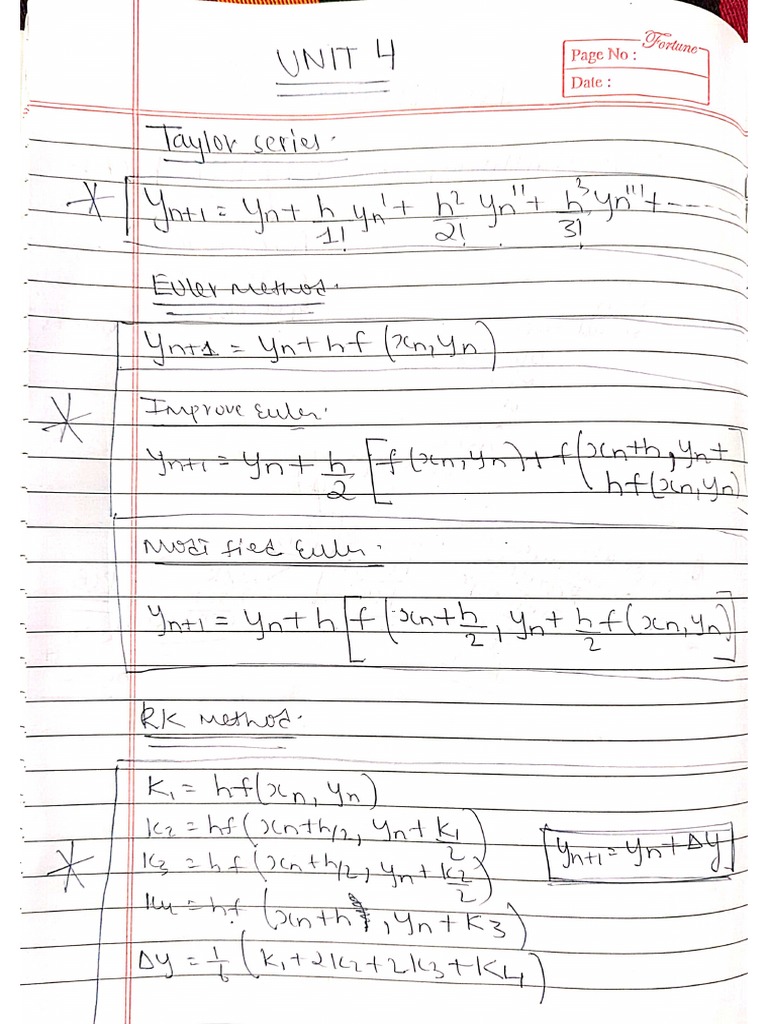 UNIT 4
Fortune
Page No :
Date :
Taylor series.
* yn+1 = yn + h/1! yn' + h²/2! yn'' + h³/3! yn''' + -----
Euler Method.
yn+1 = yn + hf (xn, yn)
* Improve Euler.
yn+1 = yn + h/2 [f (xn, yn) + f (xn+h, yn +
hf(xn, yn)]
Modified Euler.
yn+1 = yn + h [f (xn + h/2, yn + h/2 f(xn, yn)]
RK Method.
K1 = hf(xn, yn)
K2 = hf (xn+h/2, yn + K1/2)
yn+1 = yn + Δy
* K3 = hf (xn+h/2, yn + K2/2)
K4 = hf (xn+h, yn + K3)
Δy = 1/6 (K1 + 2K2 + 2K3 + K4)